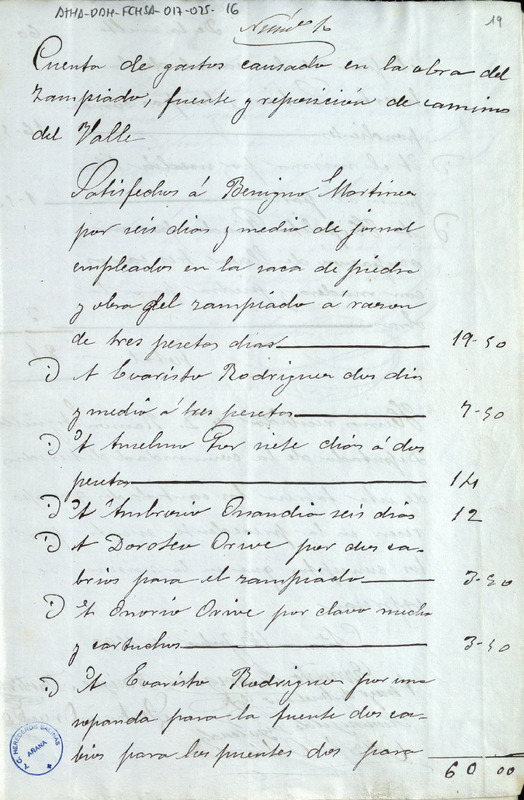 ATHA-DDH-FCHSA-017-025-16
19
Núm.º 16
Cuenta de gastos causado en la obra del
zampiado, fuente y reposición de camino
del Valle
Satisfechos á Benigno Martinez
por seis dias y medio de jornal
empleados en la saca de piedra
y obra del zampiado á razon
de tres pesetas dias 19-50
A Evaristo Rodriguez dos dias
y medio á tres pesetas 7-50
A Anselmo Paz siete dias á dos
pesetas 14
A Ambrosio Ossandia seis dias 12
A Doroteo Orive por dos ca-
brios para el zampiado 3-50
A Onorio Orive por clavo mecha
y cartuchos 3-50
A Evaristo Rodriguez por una
sopanda para la fuente dos ca-
brios para los puentes dos para
60 00
J.C. HEREDEROS SALINAS
AÑANA